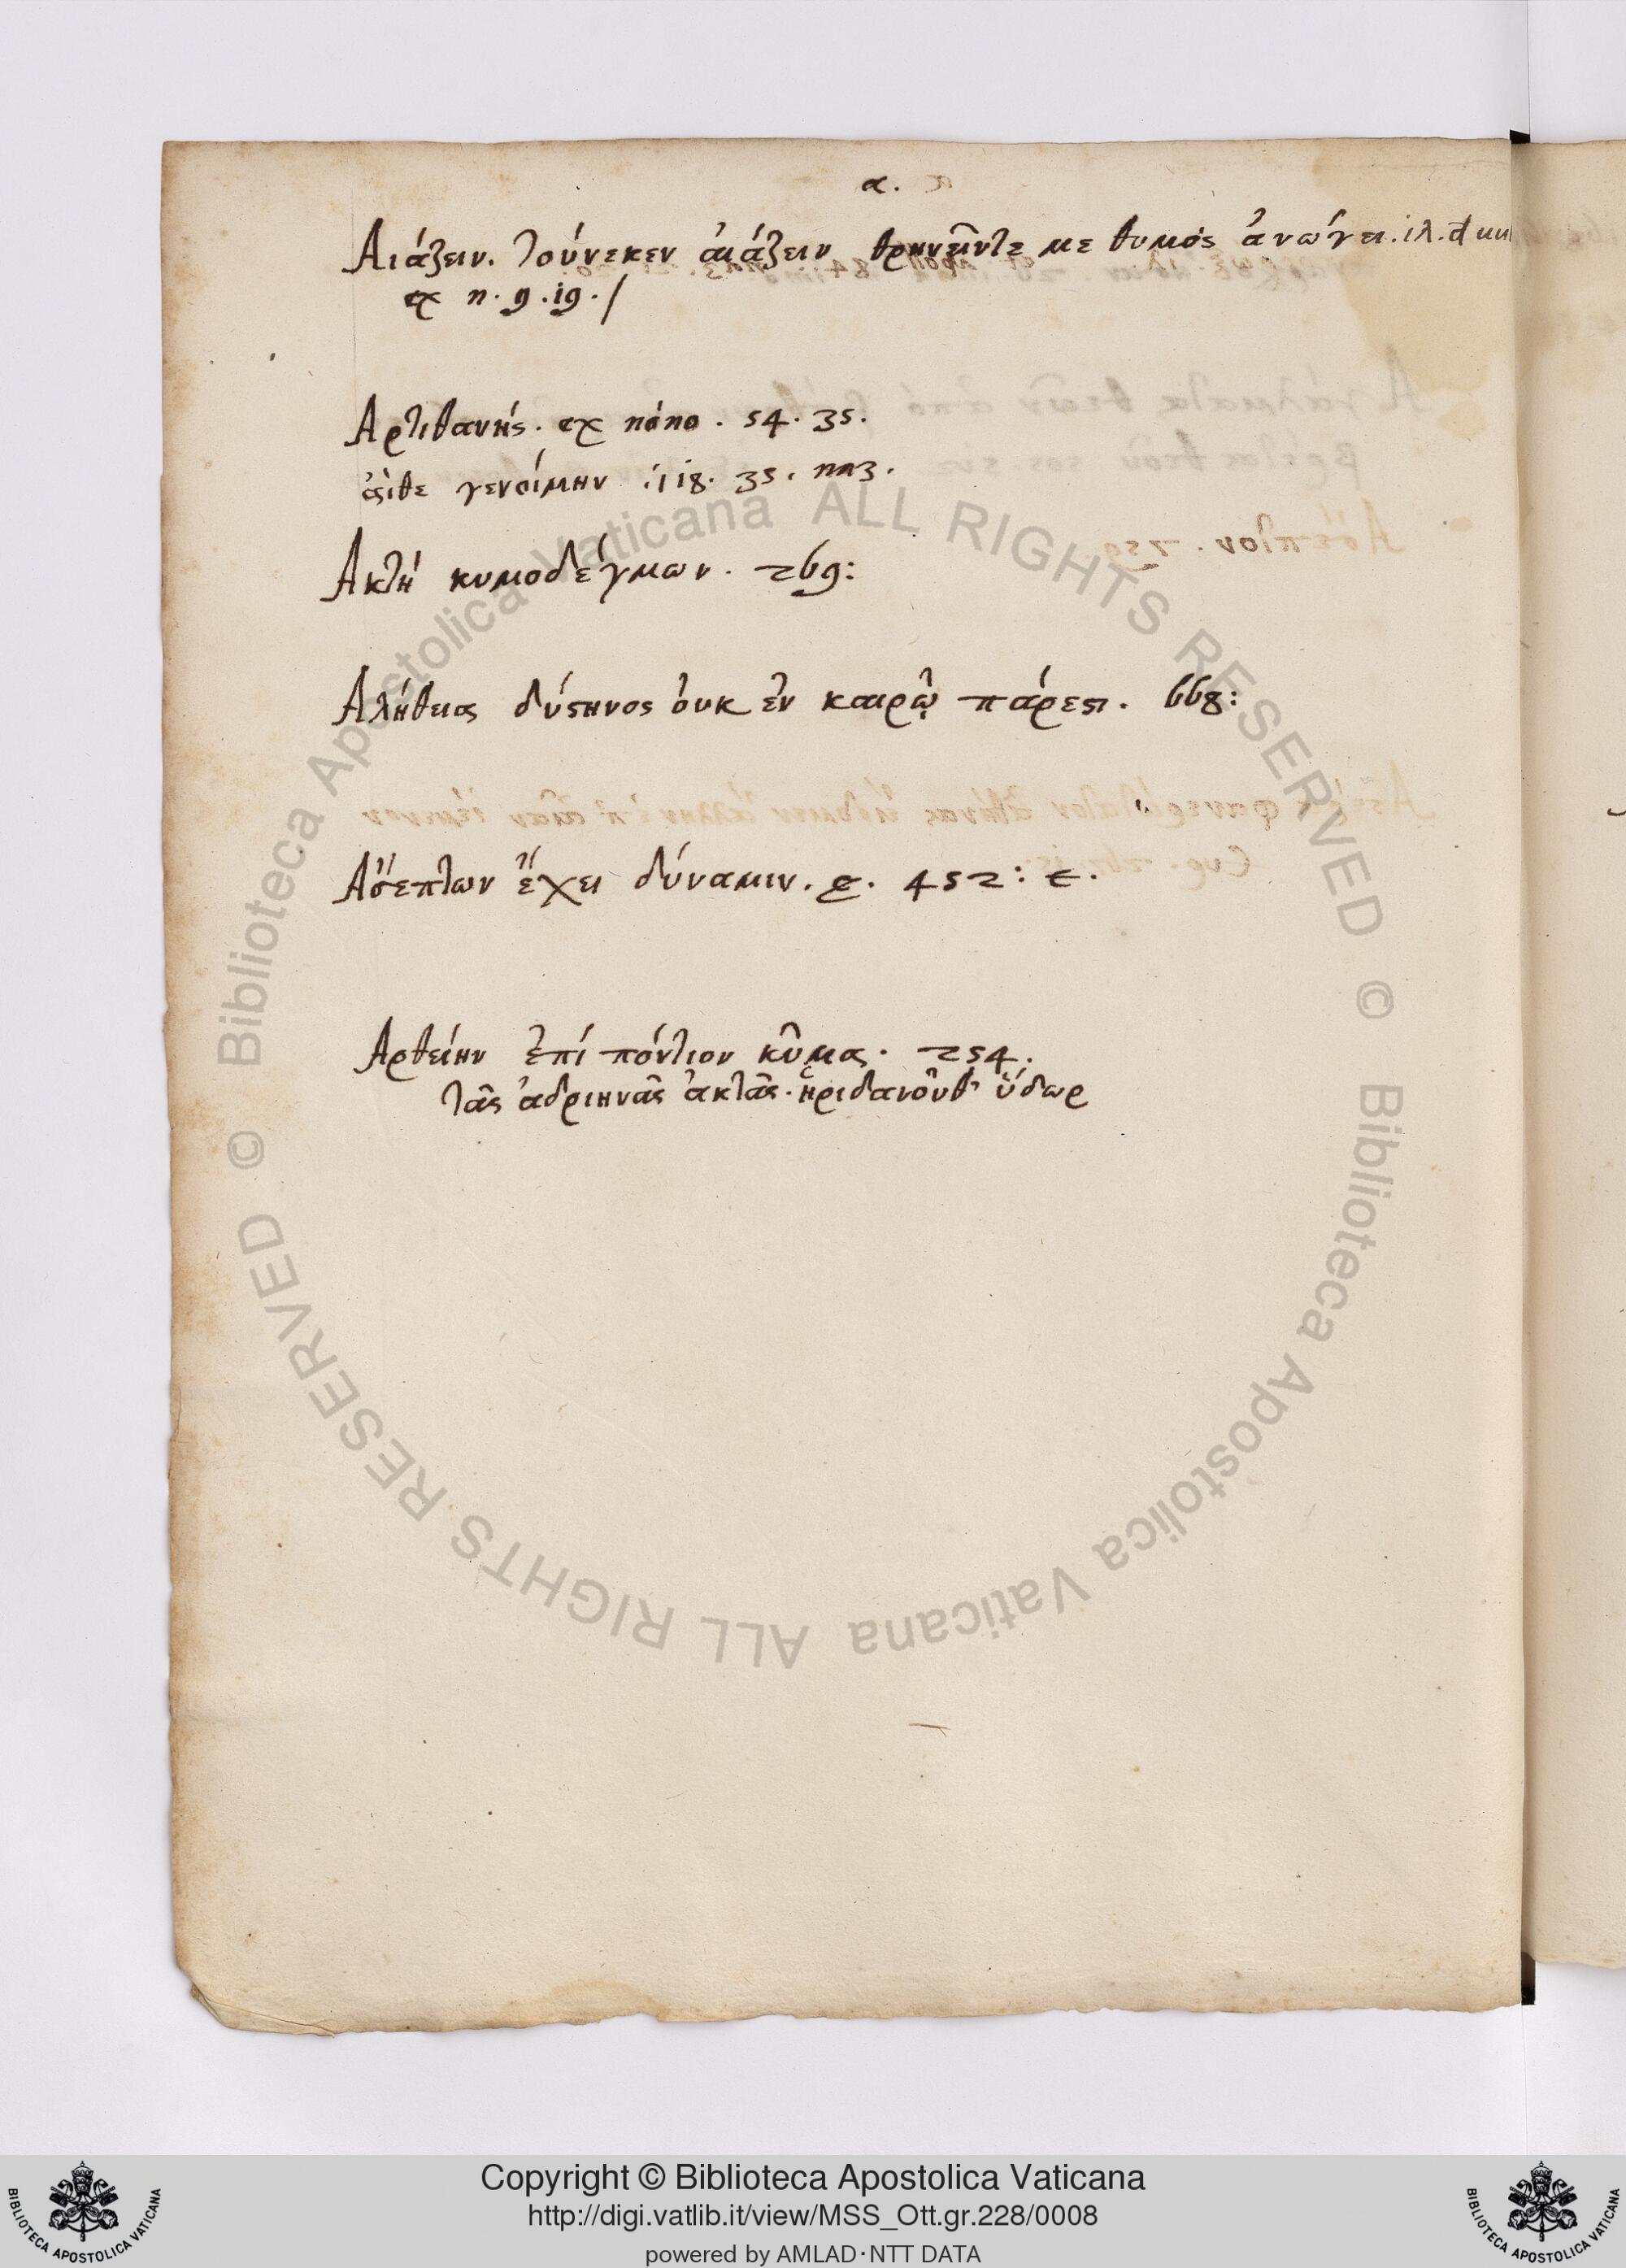 α.
Αιάζειν. τούνεκεν ἀιάζειν θρηνεῖντε με θυμὸς ἀνώγει. ἰλ.
εχ π. 9. 19. /
Αρτιθανής. εχ πόπο. 54. 35.
ἄιθε γενοίμην 35.
Ακτή κυμοδέγμων. 269:
Αλήθειας δύστηνος ὀυκ ἐν καιρῷ πάρεστι. 668:
Αόσεπτων ἔχει δύναμιν. 452:
Αρθείην ἐπί πόντιον κῦμα. 254.
τᾶς ἀδριηνᾶς ἀκτᾶς. ἠριδανοῦ θ' ὕδωρ
Biblioteca Apostolica Vaticana ALL RIGHTS RESERVED ©
Biblioteca Apostolica Vaticana ALL RIGHTS RESERVED ©
Copyright © Biblioteca Apostolica Vaticana
http://digi.vatlib.it/view/MSS_Ott.gr.228/0008
powered by AMLAD·NTT DATA
BIBLIOTECA APOSTOLICA VATICANA
BIBLIOTECA APOSTOLICA VATICANA